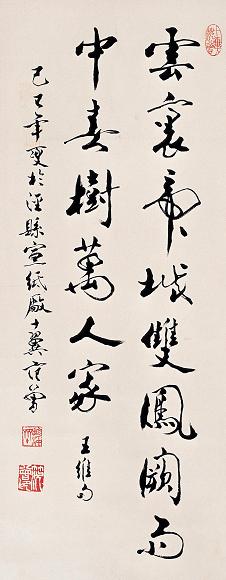 雲裏帝城雙鳳闕雨
中春樹萬人家
王維句
己巳年夏於涇縣宣紙廠十翼范曾